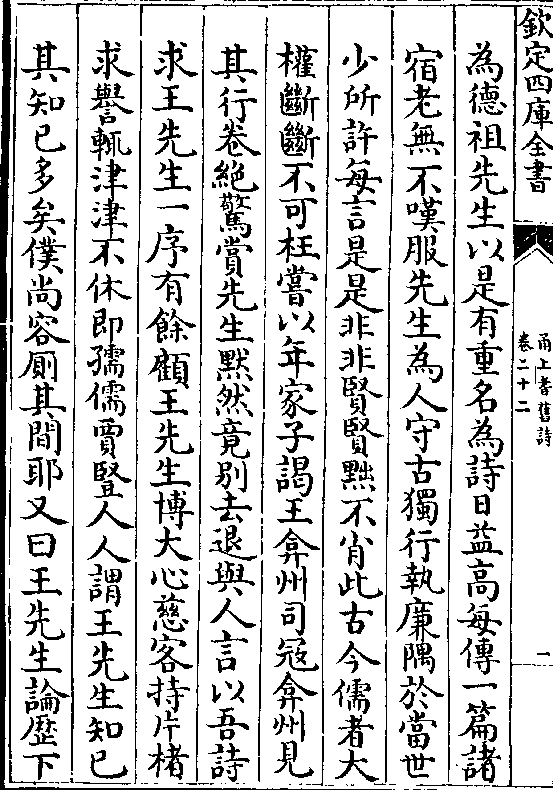 欽定四庫全書
甬上耆舊詩
卷二十二
一
為德祖先生以是有重名為詩日益高每傳一篇諸
宿老無不嘆服先生為人守古獨行執廉隅於當世
少所許每言是是非非賢賢黜不肖此古今儒者大
權斷斷不可枉嘗以年家子謁王弇州司寇弇州見
其行卷絕驚賞先生默然竟别去退與人言以吾詩
求王先生一序有餘顧王先生博大心慈客持片楮
求譽輒津津不休即孺儒賈豎人人謂王先生知已
其知已多矣僕尚容厠其間耶又曰王先生論歴下